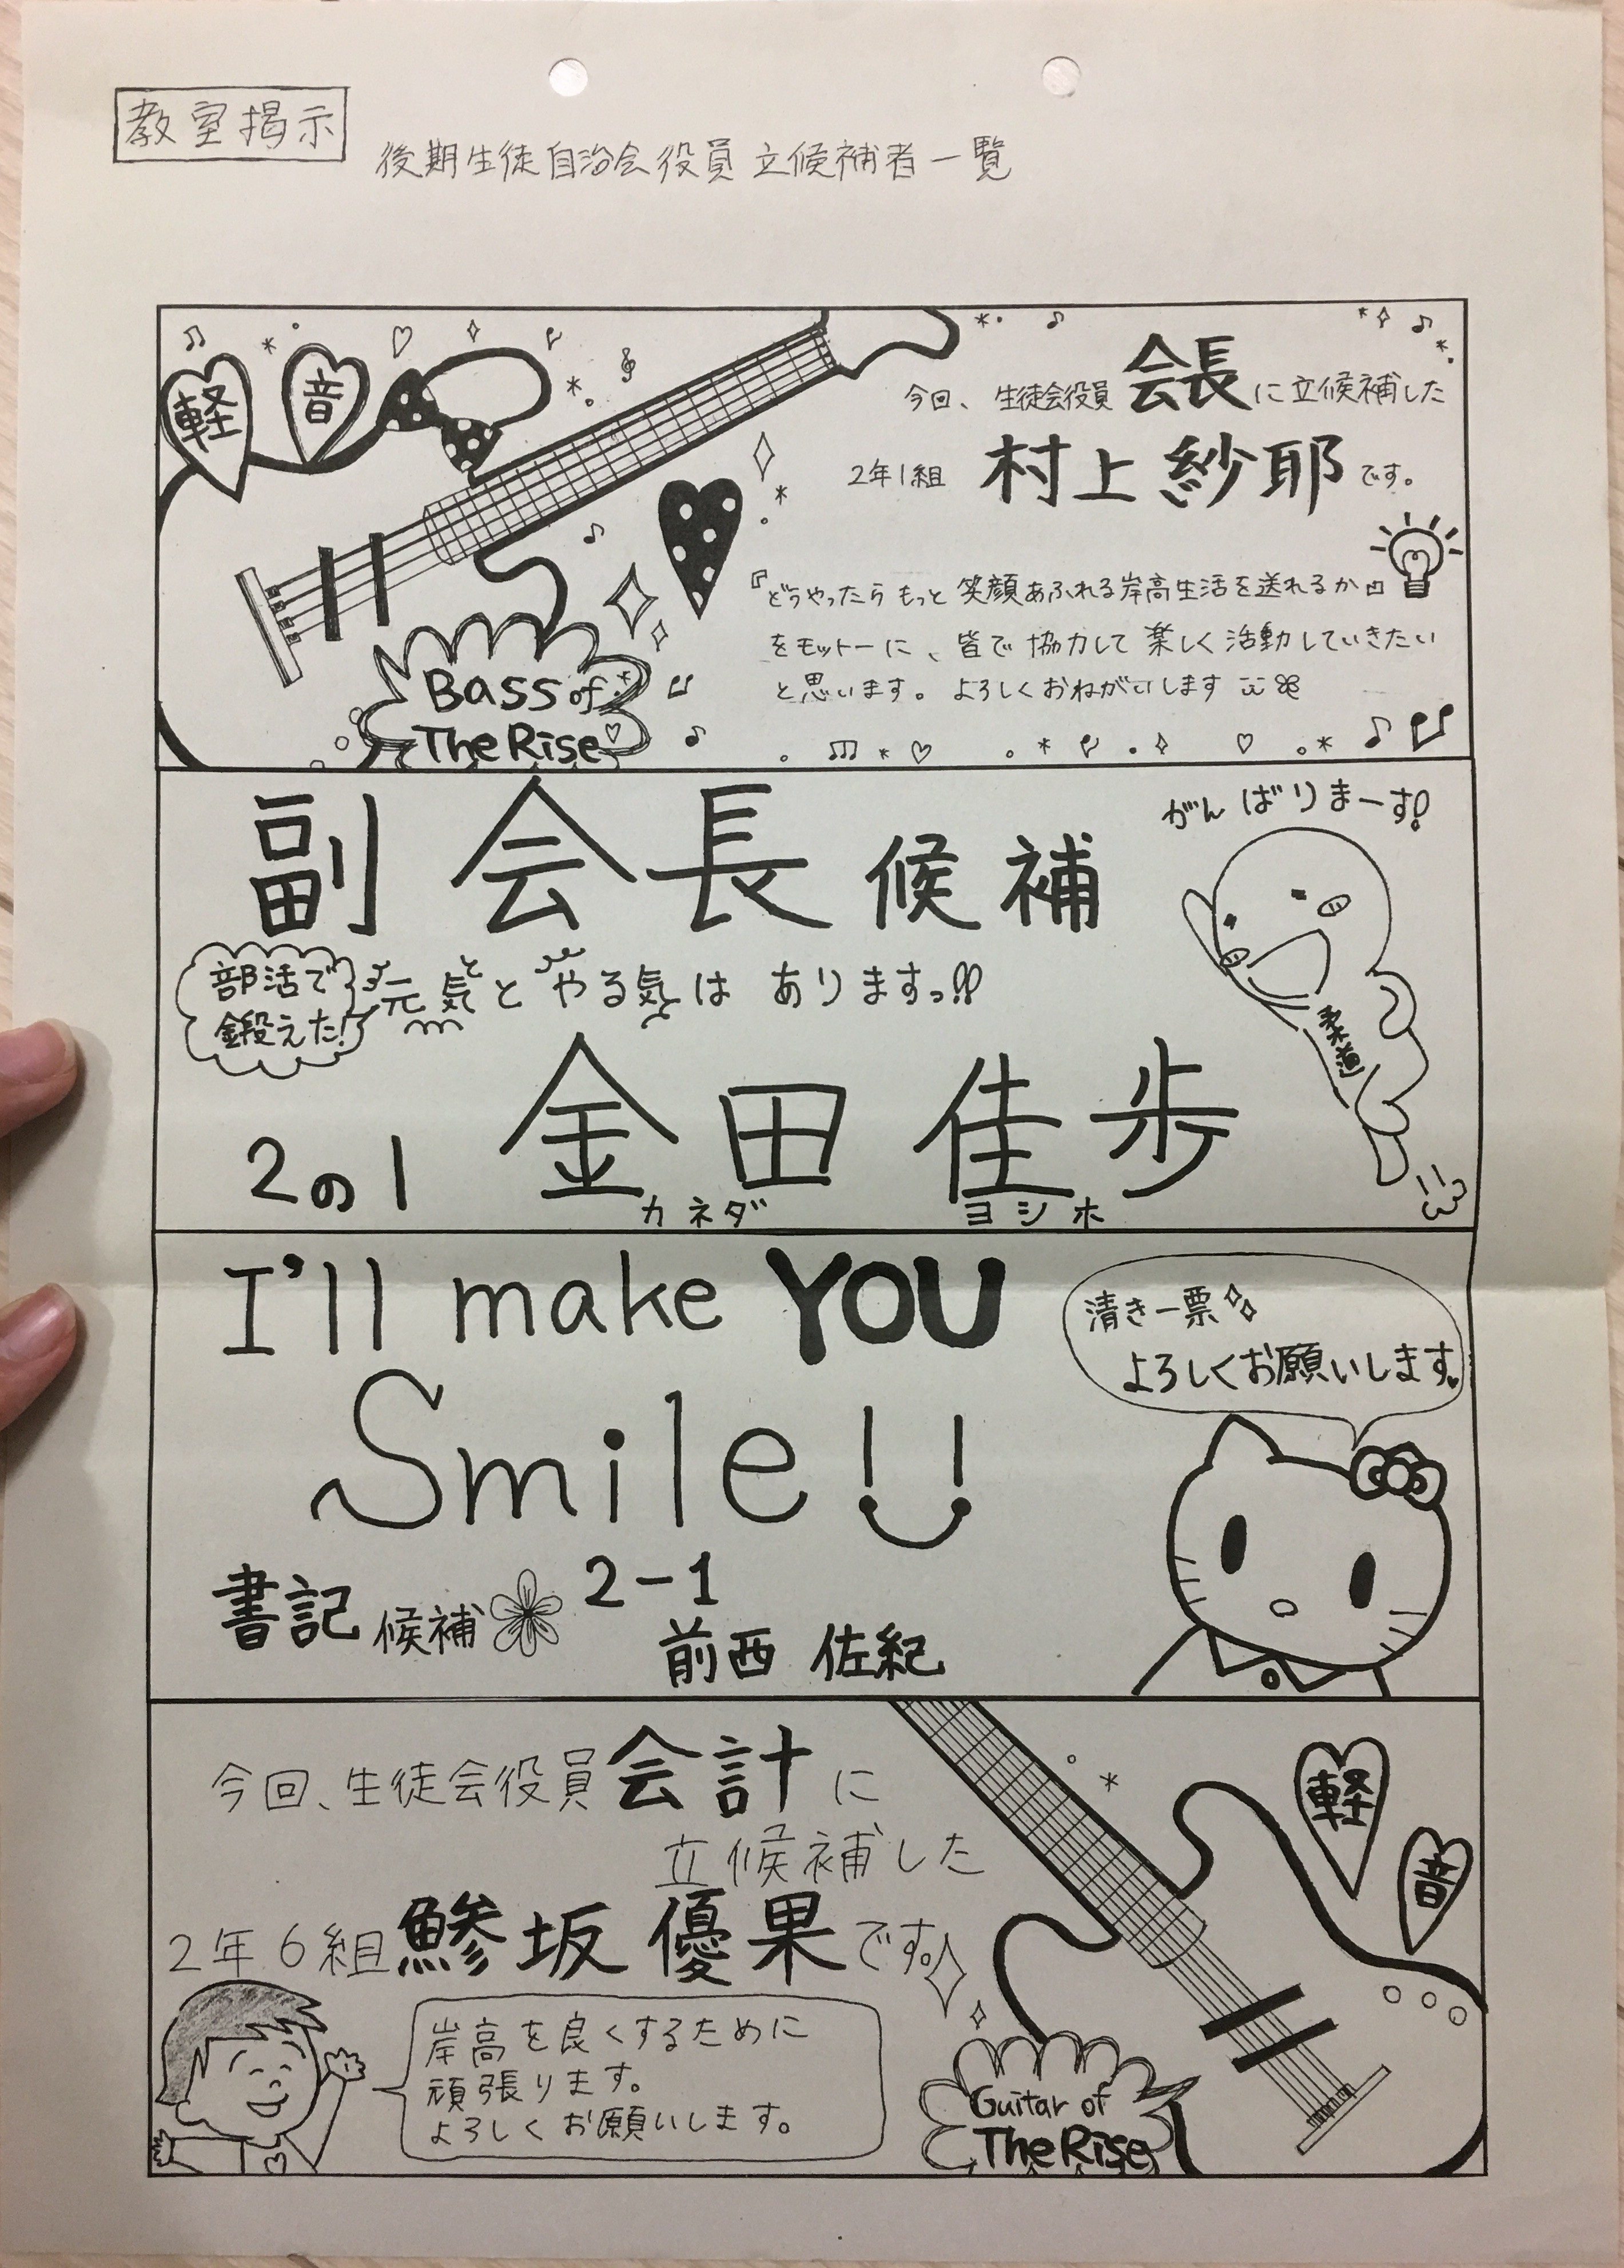 教室掲示
後期生徒自治会役員立候補者一覧
軽音
今回、生徒会役員会長に立候補した
2年1組 村上紗耶です。
『どうやったらもっと笑顔あふれる岸高生活を送れるか』
をモットーに、皆で協力して楽しく活動していきたい
と思います。よろしくおねがいします
Bass of
The Rise
副会長候補
がんばりまーす!
部活で
鍛えた!
元気とやる気はありますっ!!
柔道
2の1 金田佳歩
カネダ ヨシホ
I'll make YOU
Smile!!
清き一票
よろしくお願いします
書記候補 2-1
前西 佐紀
今回、生徒会役員会計に
立候補した
2年6組鯵坂優果です。
軽音
岸高を良くするために
頑張ります。
よろしくお願いします。
Guitar of
The Rise